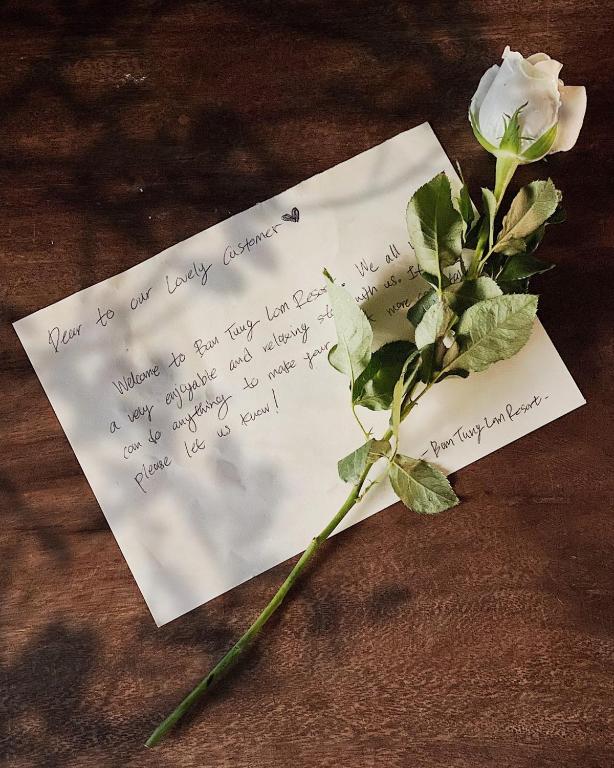 Dear to our Lovely Customer
Welcome to Ban Tung Lom We all
a very enjoyable and relaxing with us.
can do anything to make your more
please let us know!
- Ban Tung Lom Resort -